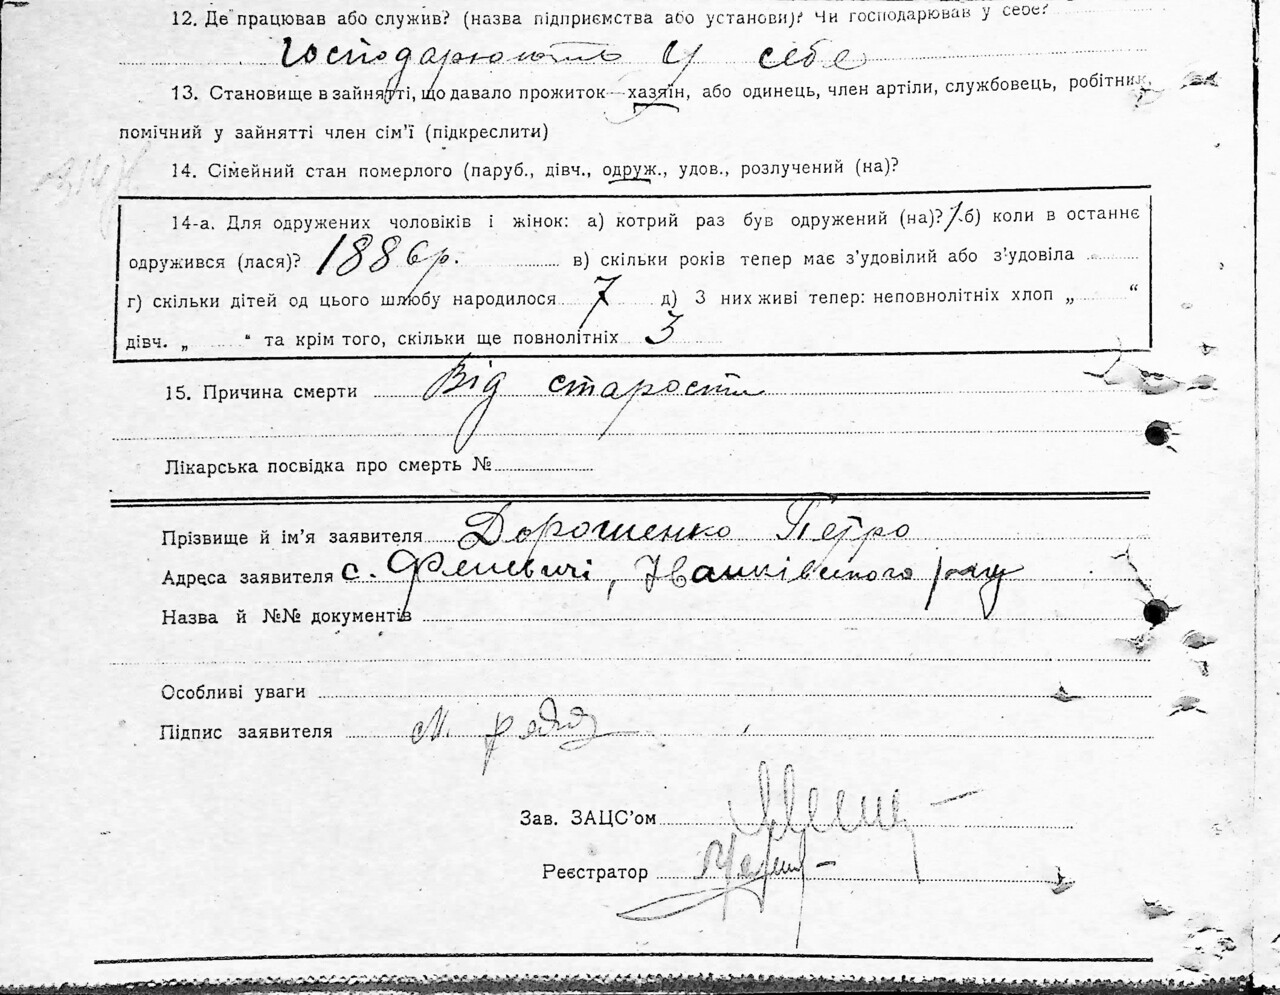 12. Де працював або служив? (назва підприємства або установи)? Чи господарював у себе?
Господарюють у себе
13. Становище в зайнятті, що давало прожиток—хазяїн, або одинець, член артілі, службовець, робітник,
помічний у зайнятті член сім'ї (підкреслити)
14. Сімейний стан померлого (паруб., дівч., одруж., удов., розлучений (на)?
14-а. Для одружених чоловіків і жінок: а) котрий раз був одружений (на)? 1 б) коли в останнє
одружився (лася)? 1886 р. в) скільки років тепер має з'удовілий або з'удовіла
г) скільки дітей од цього шлюбу народилося 7 д) З них живі тепер: неповнолітніх хлоп „ “
дівч. „ “ та крім того, скільки ще повнолітніх 3
15. Причина смерти Від старости
Лікарська посвідка про смерть №
Прізвище й ім'я заявителя Дорошенко Петро
Адреса заявителя с. Феневичі, Іванківського р-ну
Назва й №№ документів
Особливі уваги
Підпис заявителя
Зав. ЗАЦС'ом
Реєстратор